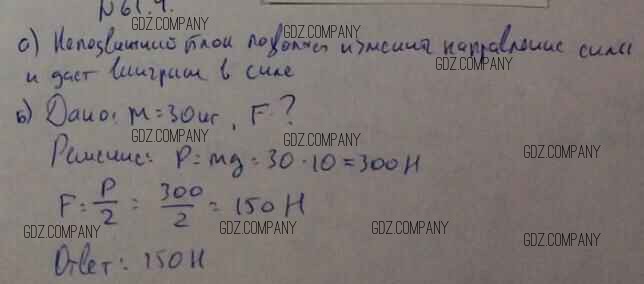 № 61.4.
GDZ.COMPANY
GDZ.COMPANY
а) Неподвижный блок позволяет изменить направление силы
GDZ.COMPANY
GDZ.COMPANY
и даст выигрыш в силе
б) Дано: m = 30 кг, F - ?
GDZ.COMPANY
GDZ.COMPANY
Решение: P = mg = 30 · 10 = 300 Н
GDZ.COMPANY
F = P/2 = 300/2 = 150 Н
GDZ.COMPANY
GDZ.COMPANY
GDZ.COMPANY
GDZ.COMPANY
Ответ: 150 Н